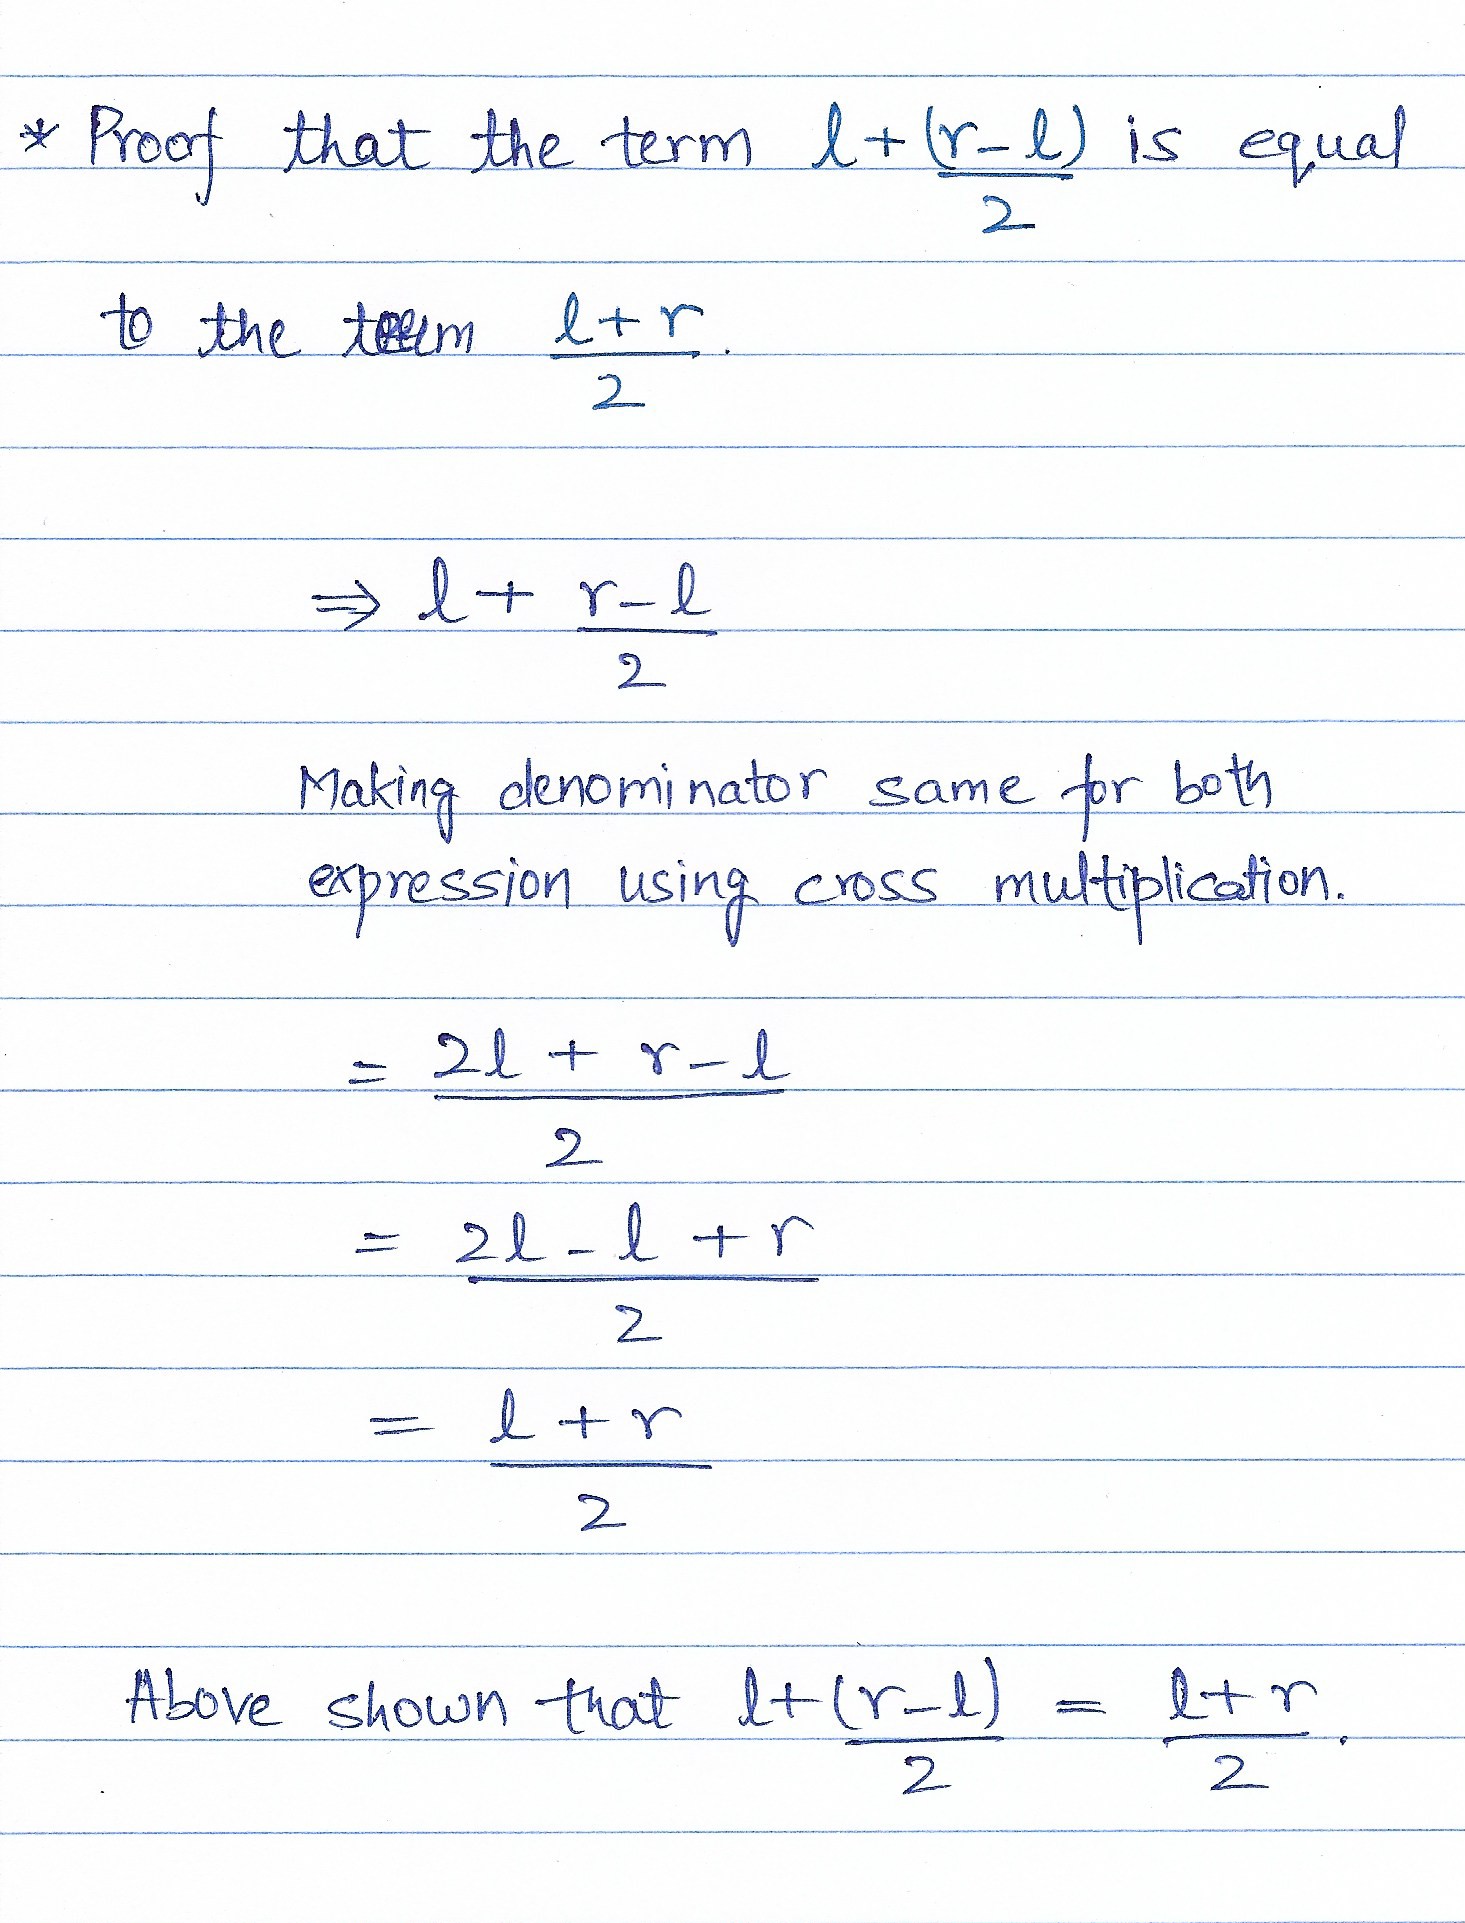 * Proof that the term l + (r-l)/2 is equal
to the term l+r/2.
⇒ l + r-l/2
Making denominator same for both
expression using cross multiplication.
= 2l + r-l/2
= 2l - l + r/2
= l + r/2
Above shown that l+(r-l)/2 = l+r/2.